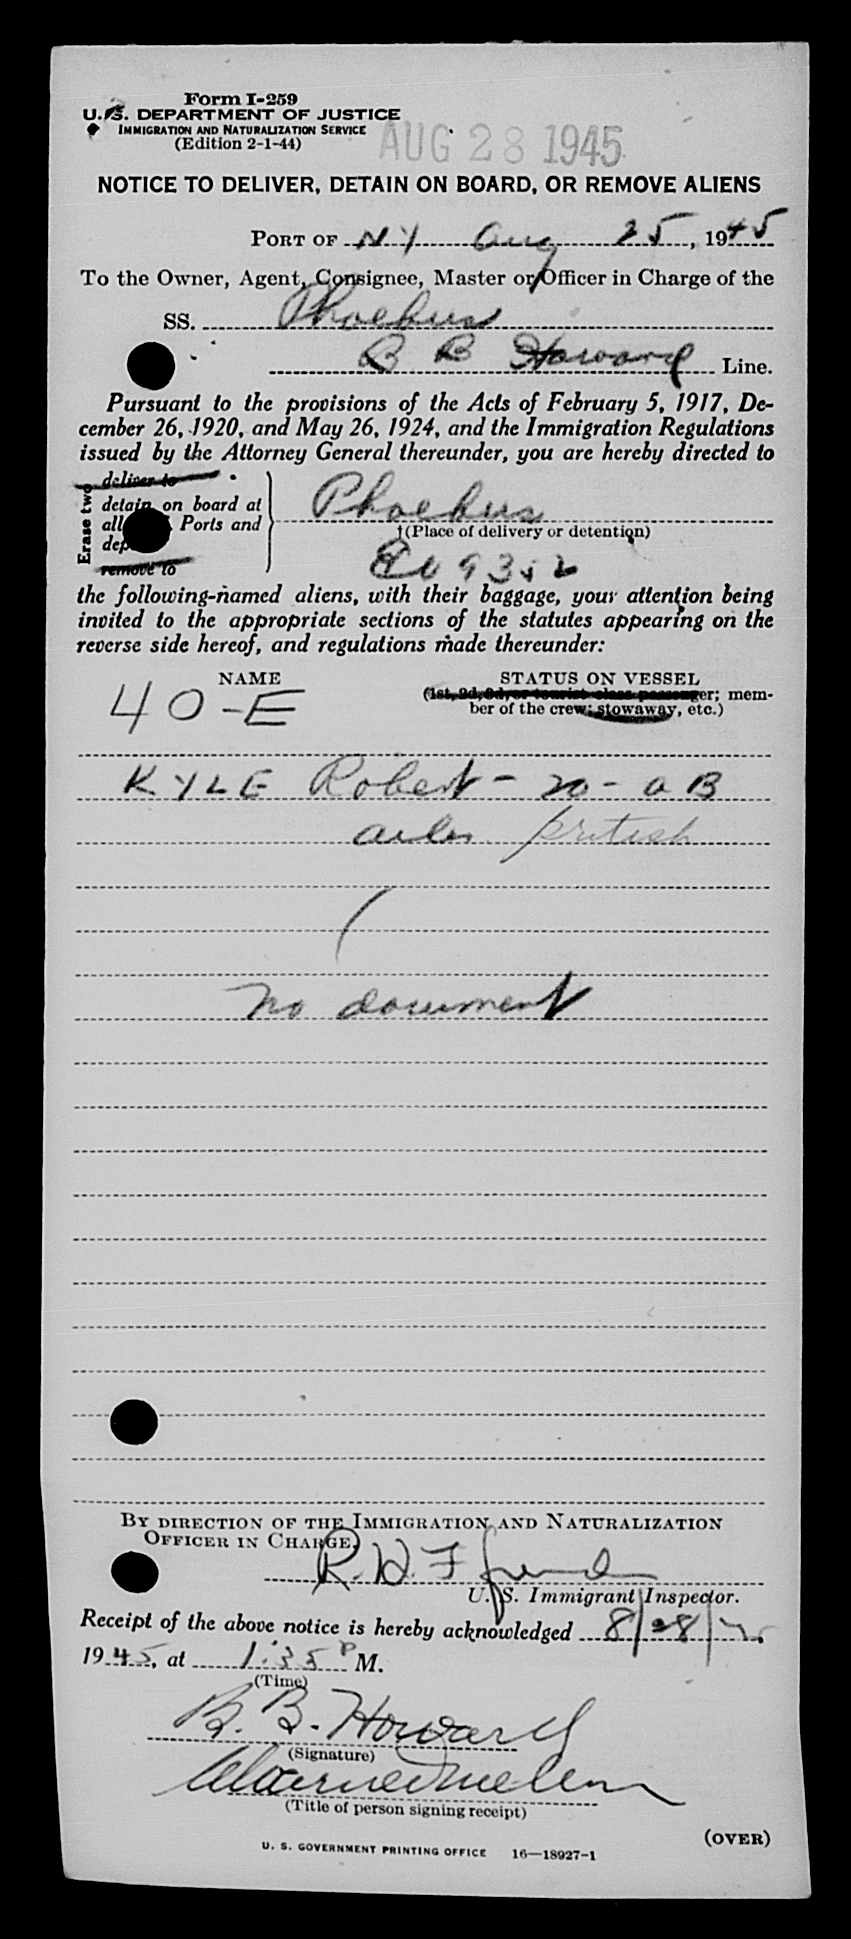 Form I-259
U. S. DEPARTMENT OF JUSTICE
IMMIGRATION AND NATURALIZATION SERVICE
(Edition 2-1-44)
AUG 28 1945
NOTICE TO DELIVER, DETAIN ON BOARD, OR REMOVE ALIENS
PORT OF NY Aug 25, 1945
To the Owner, Agent, Consignee, Master or Officer in Charge of the
SS. Phoebus
B B Howard Line.
Pursuant to the provisions of the Acts of February 5, 1917, De-
cember 26, 1920, and May 26, 1924, and the Immigration Regulations
issued by the Attorney General thereunder, you are hereby directed to
Erase two
deliver to
detain on board at
all Ports and
remove to
Phoebus
†(Place of delivery or detention)
the following-named aliens, with their baggage, your attention being
invited to the appropriate sections of the statutes appearing on the
reverse side hereof, and regulations made thereunder:
NAME STATUS ON VESSEL
(1st, 2d, 3d, or tourist class passenger; mem-
ber of the crew; stowaway, etc.)
40-E
KYLE Robert - 20 - a B
British
no document
BY DIRECTION OF THE IMMIGRATION AND NATURALIZATION
OFFICER IN CHARGE.
R. H. F
U. S. Immigrant Inspector.
Receipt of the above notice is hereby acknowledged 8/28/
1945, at 1:35 P M.
(Time)
B. B. Howard
(Signature)
(Title of person signing receipt)
(OVER)
U. S. GOVERNMENT PRINTING OFFICE 16—18927-1